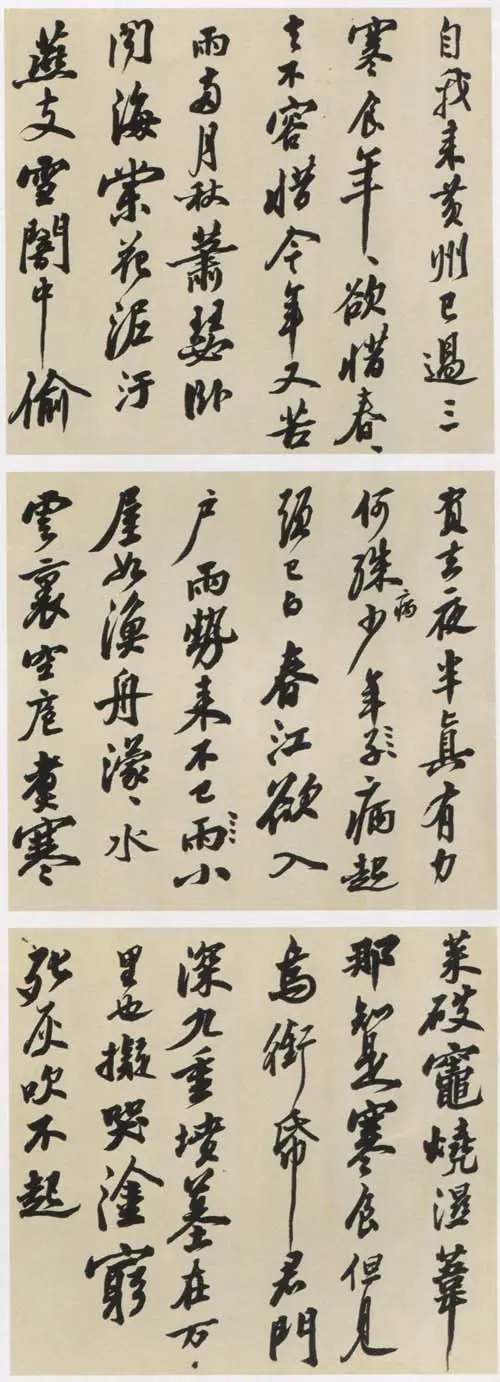 自我来黄州已過三
寒食年、欲惜春、
去不容惜今年又苦
雨兩月秋蕭瑟卧
聞海棠花泥汙
燕支雪闇中偷
負去夜半真有力
何殊病少年子病起
頭已白春江欲入
户雨勢来不已雨小
屋如漁舟濛、水
雲裏空庖煑寒
菜破竈燒濕葦
那知是寒食但見
烏銜帋君門
深九重墳墓在万、
里也擬哭塗窮
死灰吹不起